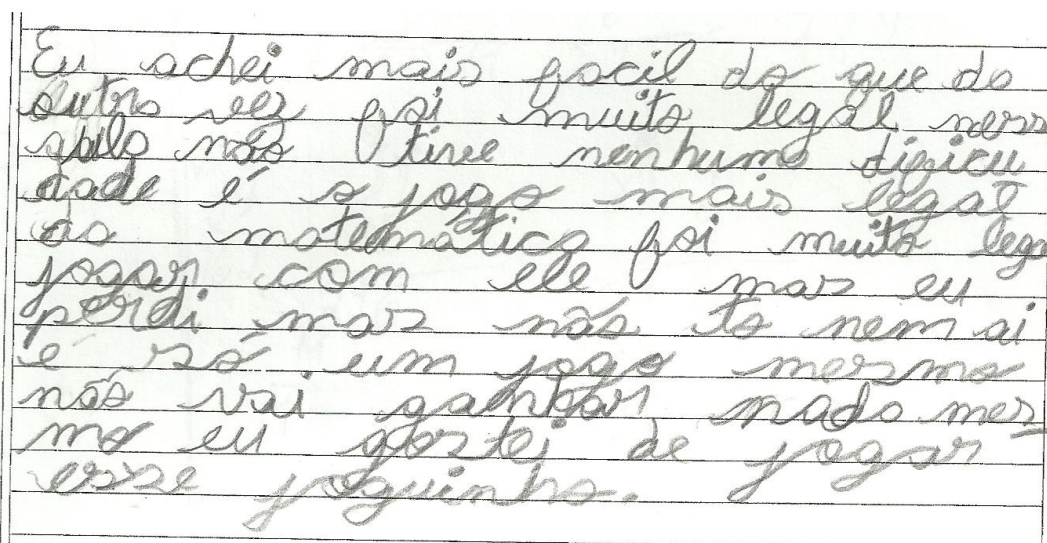 Eu achei mais facil do que da
outra vez foi muito legal ness
quilo não tive nenhuma dificu
dade é o jogo mais legal
da matemática foi muito lega
jogar com ele mas eu
perdi mas não to nem ai
é só um jogo mesmo
não vai ganhar nada mes_
mo eu gostei de jogar
esse joguinho.